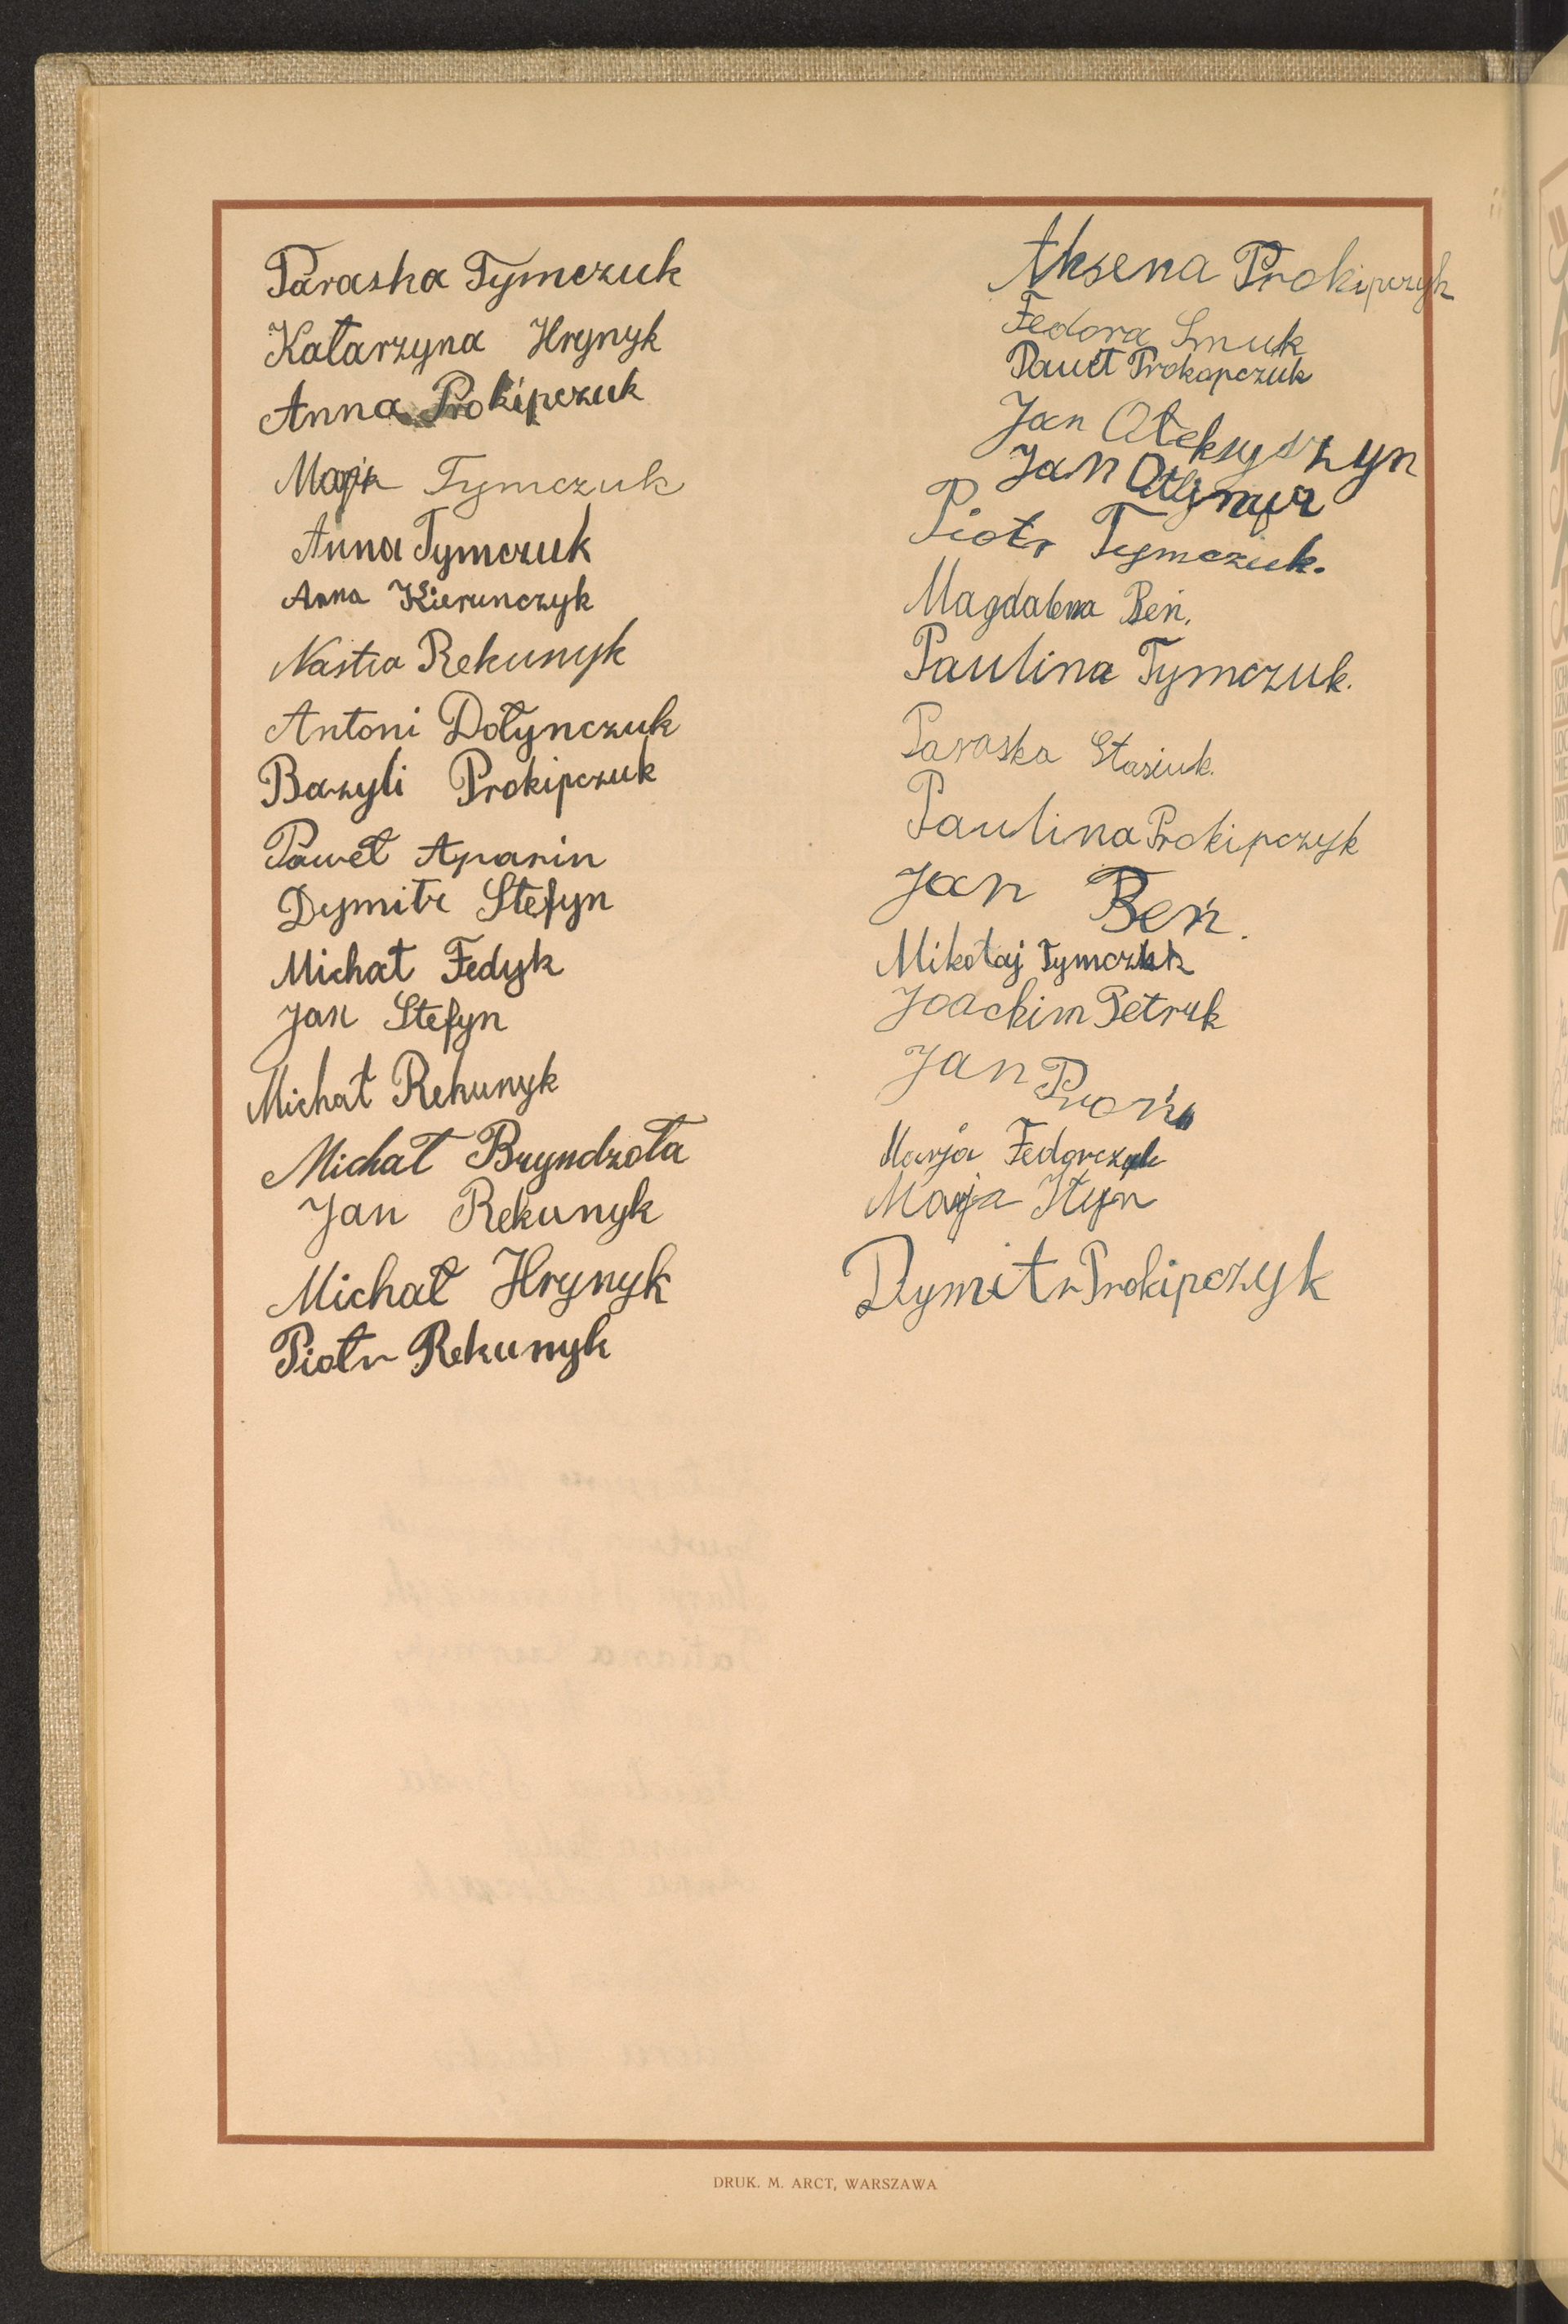 Paraska Tymczuk
Katarzyna Hrynyk
Anna Prokipczuk
Marja Tymczuk
Anna Tymczuk
Anna Kierunczyk
Nastia Rekunyk
Antoni Dołynczuk
Bazyli Prokipczuk
Paweł Aparin
Dymitr Stefyn
Michał Fedyk
Jan Stefyn
Michał Rekunyk
Michał Bryndzoła
Jan Rekunyk
Michał Hrynyk
Piotr Rekunyk
Aksena Prokipczyk
Fedora Smuk
Paweł Prokopczuk
Jan Ołeksyszyn
Jan
Piotr Tymczuk.
Magdalena Beń.
Paulina Tymczuk.
Paraska Stasiuk.
Paulina Prokipczyk
Jan Beń.
Mikołaj Tymczuk
Joachim Petruk
Jan Proń
Marja Fedorczuk
Marja
Dymitr Prokipczyk
DRUK. M. ARCT, WARSZAWA